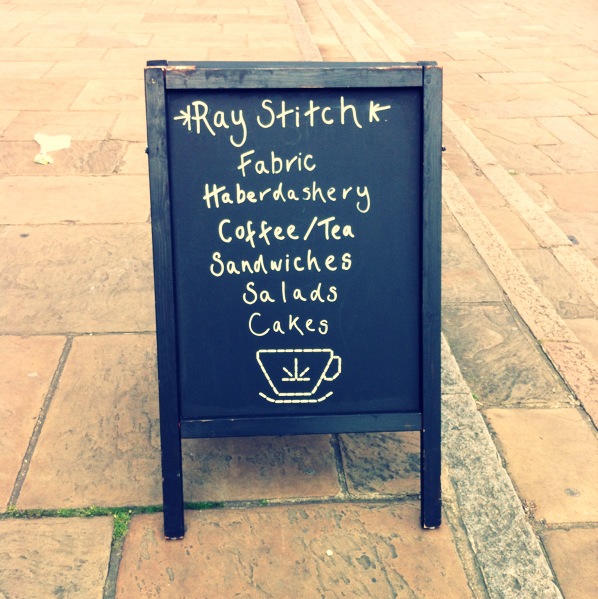 Ray Stitch
Fabric
Haberdashery
Coffee/Tea
Sandwiches
Salads
Cakes